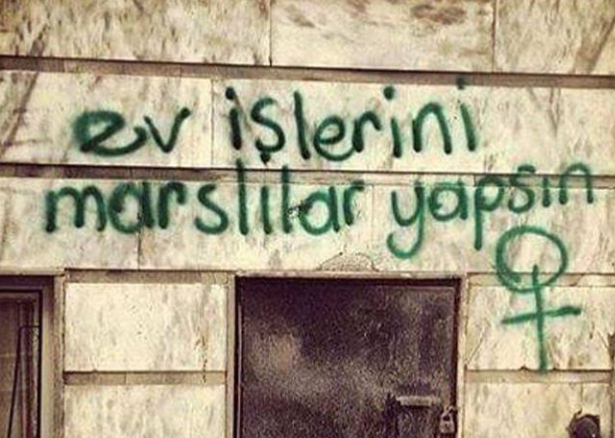 ev işlerini
marslılar yapsın